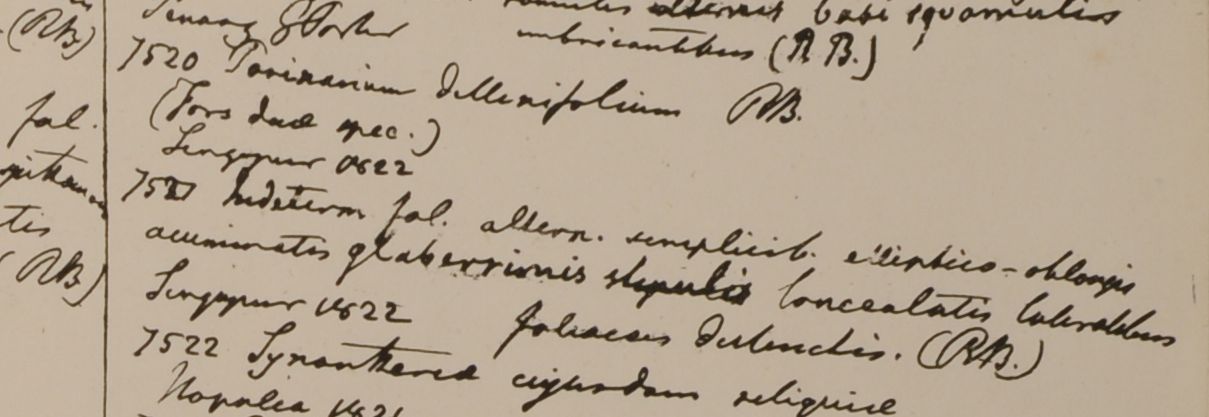 (RB)
fol.
tis
(RB)
Penang GPorter ramulis alternis basi squamulis
imbricantibus (RB.)
7520 Parinarium dillenifolium RB.
(Fors duæ spec.)
Singapur 1822
7521 Indeterm fol. altern. simplicib. elliptico-oblongis
acuminatis glaberrimis stipulis lanceolatis lateralibus
Singapur 1822 foliaceis distinctis. (RB.)
7522 Synantherea cujusdam reliquiæ
Napalia 1821